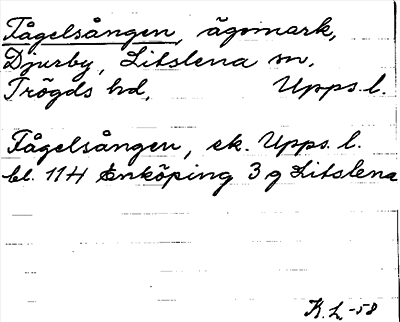 Fågelsången, ägomark,
Djurby, Litslena sn.
Trögds hd, Upps. l.
Fågelsången, ek. Upps. l.
bl. 114 Enköping 3 g Litslena
K.L-58